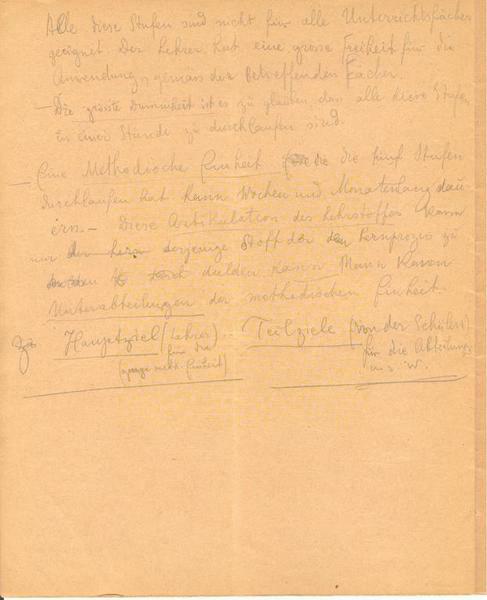 Alle diese Stufen sind nicht für alle Unterrichtsfächer
geeignet. Der Lehrer hat eine grosse Freiheit für die
Anwendung, gemäss der betreffenden Fächer.
— Die grösste Dummheit ist es zu glauben dass alle diese Stufen
in einer Stunde zu durchlaufen sind.
— Eine Methodische Einheit die fünf Stufen
durchlaufen hat kann Wochen und Monatenlang dau-
ern. — Diese Artikulation des Lehrstoffes kann
nur derjenige Stoff der den Lernprozis zu
dulden kann Mann kann
Unterabteilungen der methodischen Einheit.
Hauptziel (Lehrer) .. Teilziele (von der Schülern)
für die für die Abteilung
(ganze meth. Einheit) u. s. w.